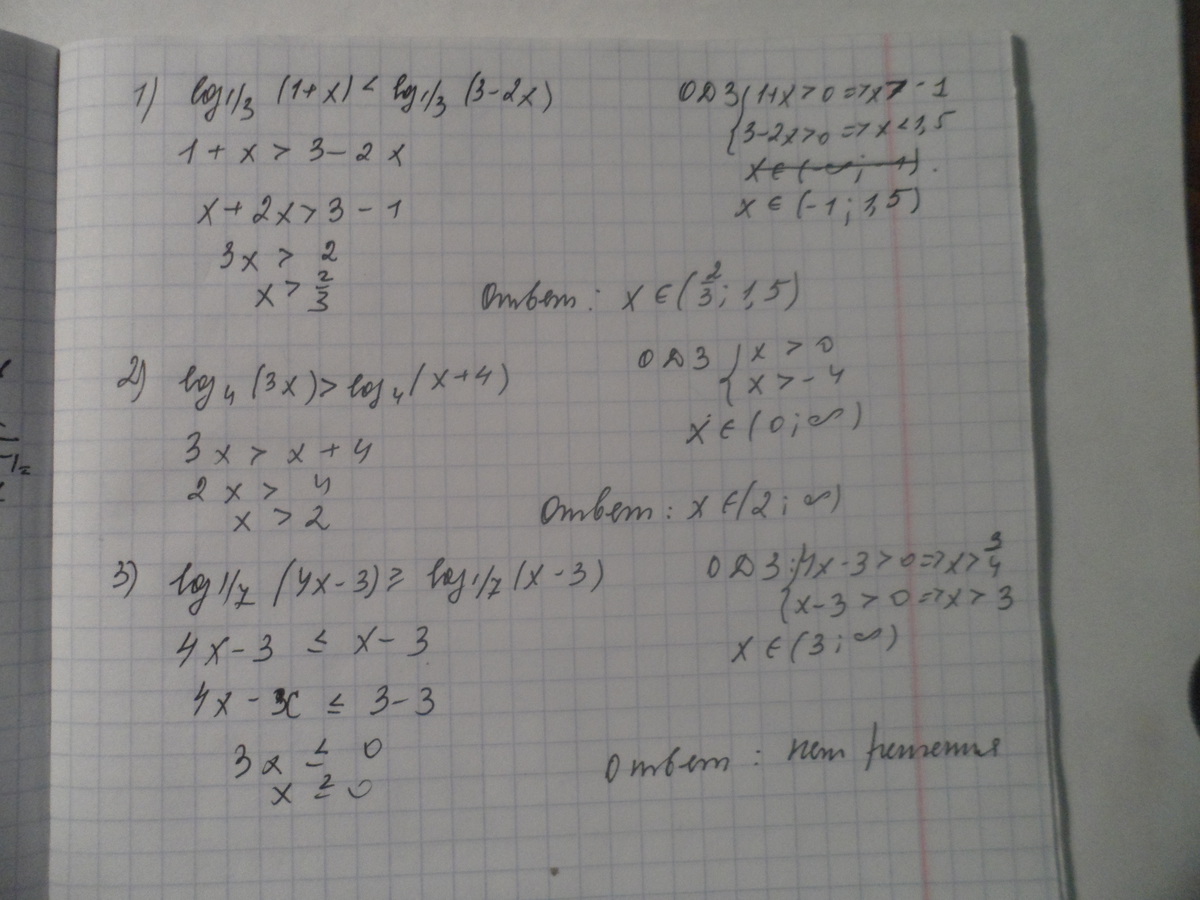 1) log1/3 (1+x) < log1/3 (3-2x)
ОДЗ { 1+x > 0 => x > -1
3-2x>0 => x < 1,5
x ∈ (-∞; -1).
x ∈ (-1; 1,5)
1 + x > 3 - 2x
x + 2x > 3 - 1
3x > 2
x > 2/3
Ответ: x ∈ (2/3; 1,5)
2) log4 (3x) > log4 (x+4)
ОДЗ { x > 0
x > -4
x ∈ (0; ∞)
3x > x + 4
2x > 4
x > 2
Ответ: x ∈ (2; ∞)
3) log1/7 (4x-3) ≥ log1/7 (x-3)
ОДЗ: { 4x-3 > 0 => x > 3/4
x-3 > 0 => x > 3
x ∈ (3; ∞)
4x-3 ≤ x-3
4x - x ≤ 3-3
3x ≤ 0
x ≤ 0
Ответ: нет решения